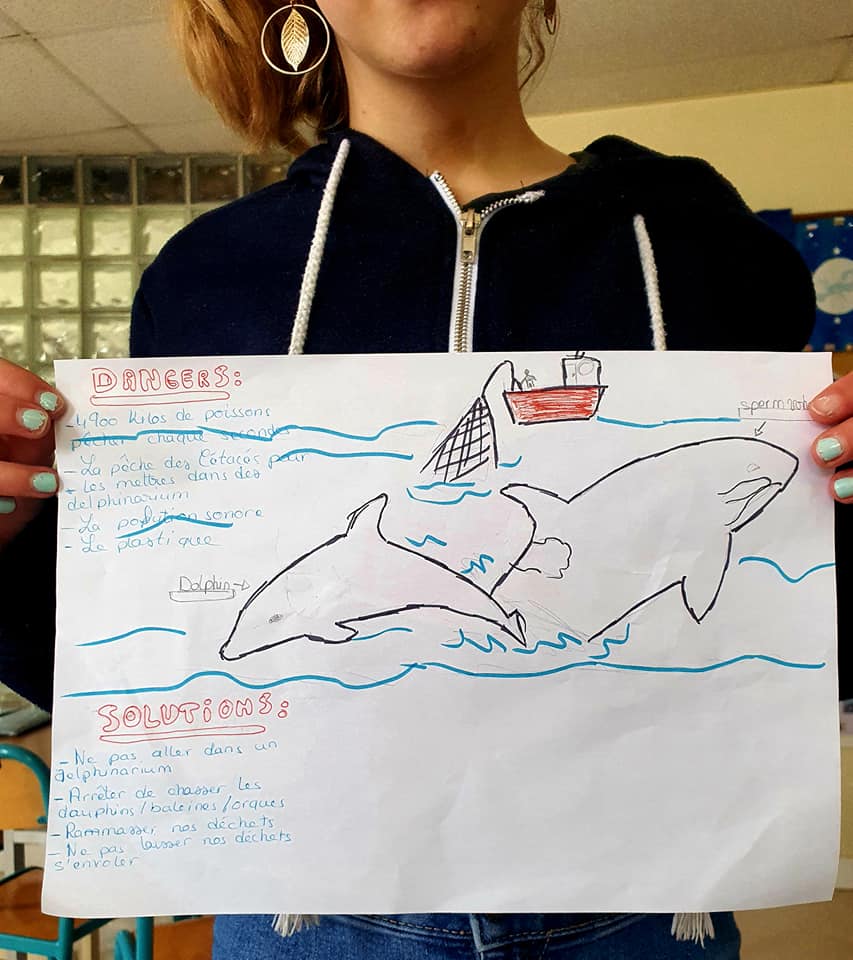 DANGERS:
- 4900 kilos de poissons
pêcher chaque secondes
- La pêche des Cétacés pour
les mettres dans des
delphinarium
- La pollution sonore
- Le plastique
sperm
Dolphin →
SOLUTIONS:
- Ne pas aller dans un
delphinarium
- Arrêter de chasser les
dauphins/baleines/orques
- Rammasser nos déchets
- Ne pas laisser nos déchets
s'envoler